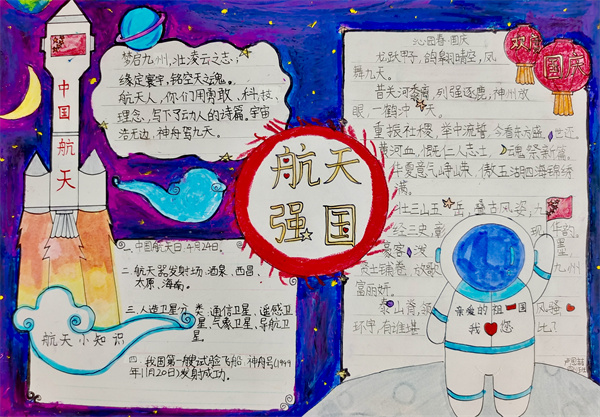 中国航天
梦启九州，壮凌云之志；
缘定寰宇，铭空天之魂。
航天人，你们用勇敢、科技、
理念，写下了动人的诗篇。宇宙
浩无边，神舟驾九天。
航天
强国
一、中国航天日：4月24日。
二、航天器发射场：酒泉、西昌、
太原、海南。
三、人造卫星分类：通信卫星、遥感卫
星、气象卫星、导航卫
星。
四、我国第一艘试验飞船 神舟号(1999
年11月20日)发射成功。
航天小知识
欢度
国庆
沁园春·国庆
龙跃甲子，鸽翱晴空，凤
舞九天。
昔关河黍离，列强逐鹿，神州放
眼，一鹤冲天。
重振社稷，举中流誓，今看东方盛
黄河血，慨仁人志士，魂祭新篇。
华夏意气峥嵘，傲五湖四海锦绣
满。
壮三山五岳，叠古风姿，九
经三史，
豪客
贤士
九州
富丽妍。
山脊
环宇，
亲爱的祖国
我❤您